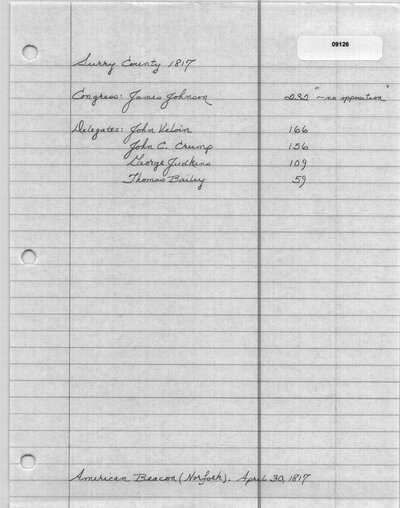 09126
Surry County 1817
Congress: James Johnson 232 "~no opposition"
Delegates: John 166
John C. Crump 156
George Judkins 109
Thomas Bailey 59
American Beacon (Norfolk). April 30, 1817